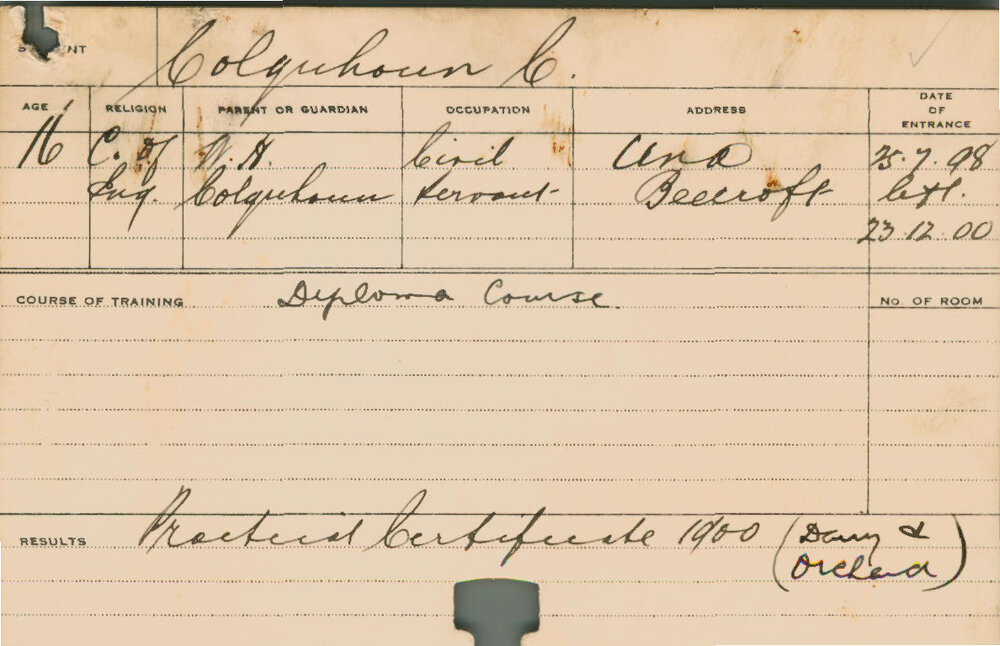 STUDENT Colquhoun C.
AGE RELIGION PARENT OR GUARDIAN OCCUPATION ADDRESS DATE OF ENTRANCE
16 C. of W. H. Civil Una 25.7.98
Eng. Colquhoun Servant Beecroft left.
23.12.00
COURSE OF TRAINING Diploma Course. No. OF ROOM
RESULTS Practical Certificate 1900 (Dairy &
Orchard)